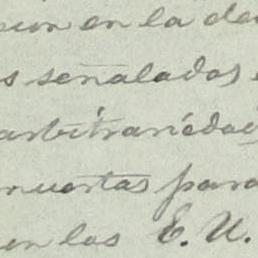 en la
señalados
arbitrariedad
muertas para
en los E. U.